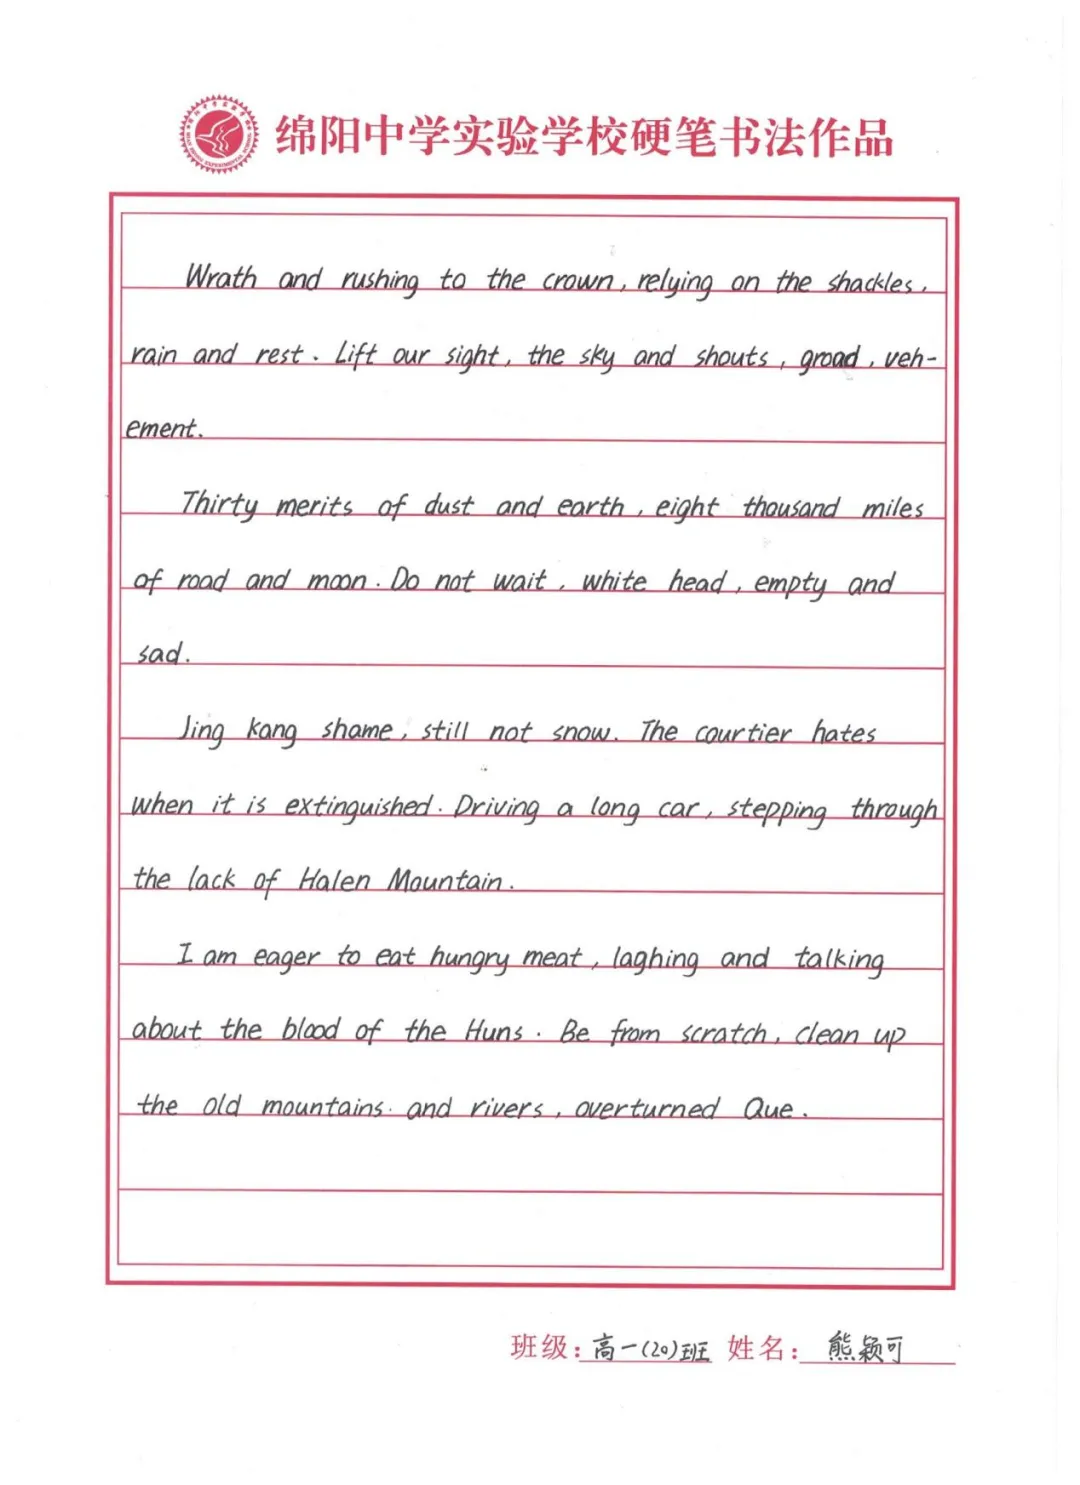 绵阳中学实验学校硬笔书法作品
Wrath and rushing to the crown, relying on the shackles,
rain and rest. Lift our sight, the sky and shouts, groad, veh-
ement.
Thirty merits of dust and earth, eight thousand miles
of road and moon. Do not wait, white head, empty and
sad.
Jing Kang shame, still not snow. The courtier hates
when it is extinguished. Driving a long car, stepping through
the lack of Halen Mountain.
I am eager to eat hungry meat, laghing and talking
about the blood of the Huns. Be from scratch, clean up
the old mountains. and rivers, overturned Que.
班级:高一(20)班 姓名:熊颖可